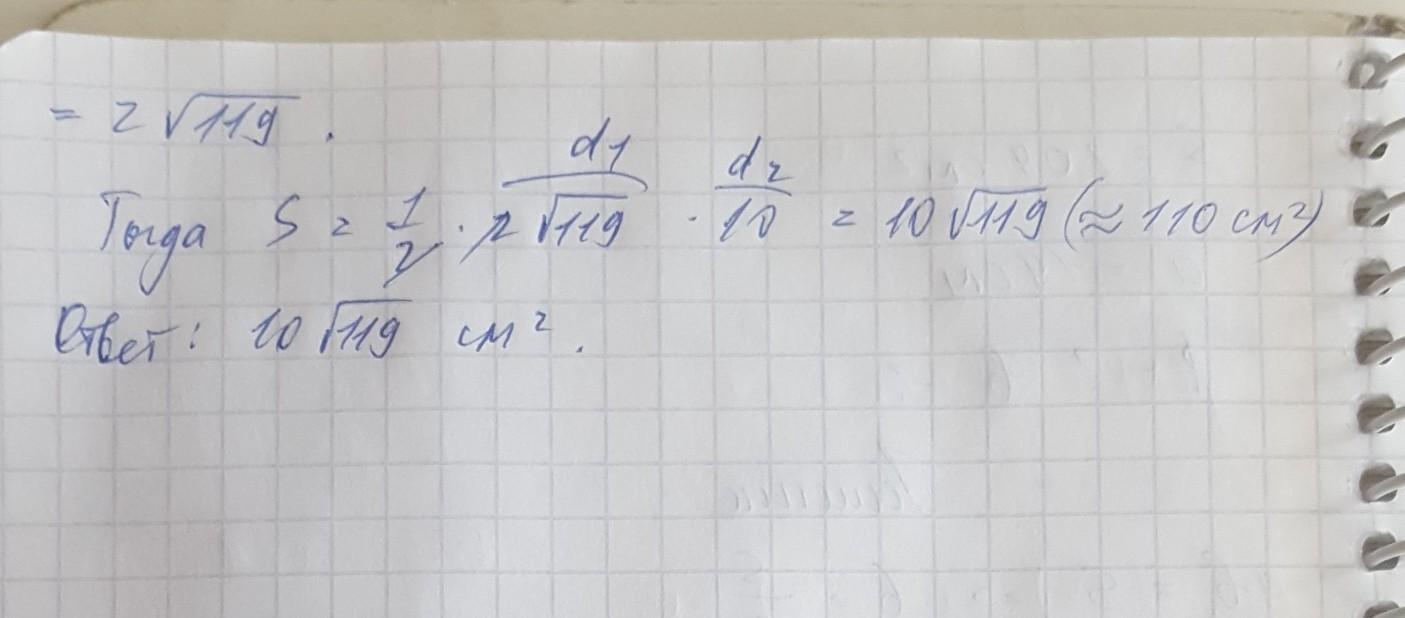 = 2√119 .
d1 d2
Тогда S = 1/2 · 2√119 · 10 = 10√119 (≈ 110 см²)
Ответ: 10√119 см².